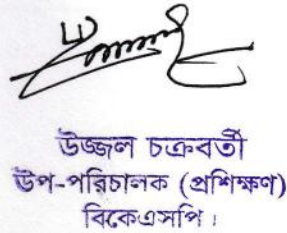 উজ্জল চক্রবর্তী
উপ-পরিচালক (প্রশিক্ষণ)
বিকেএসপি।